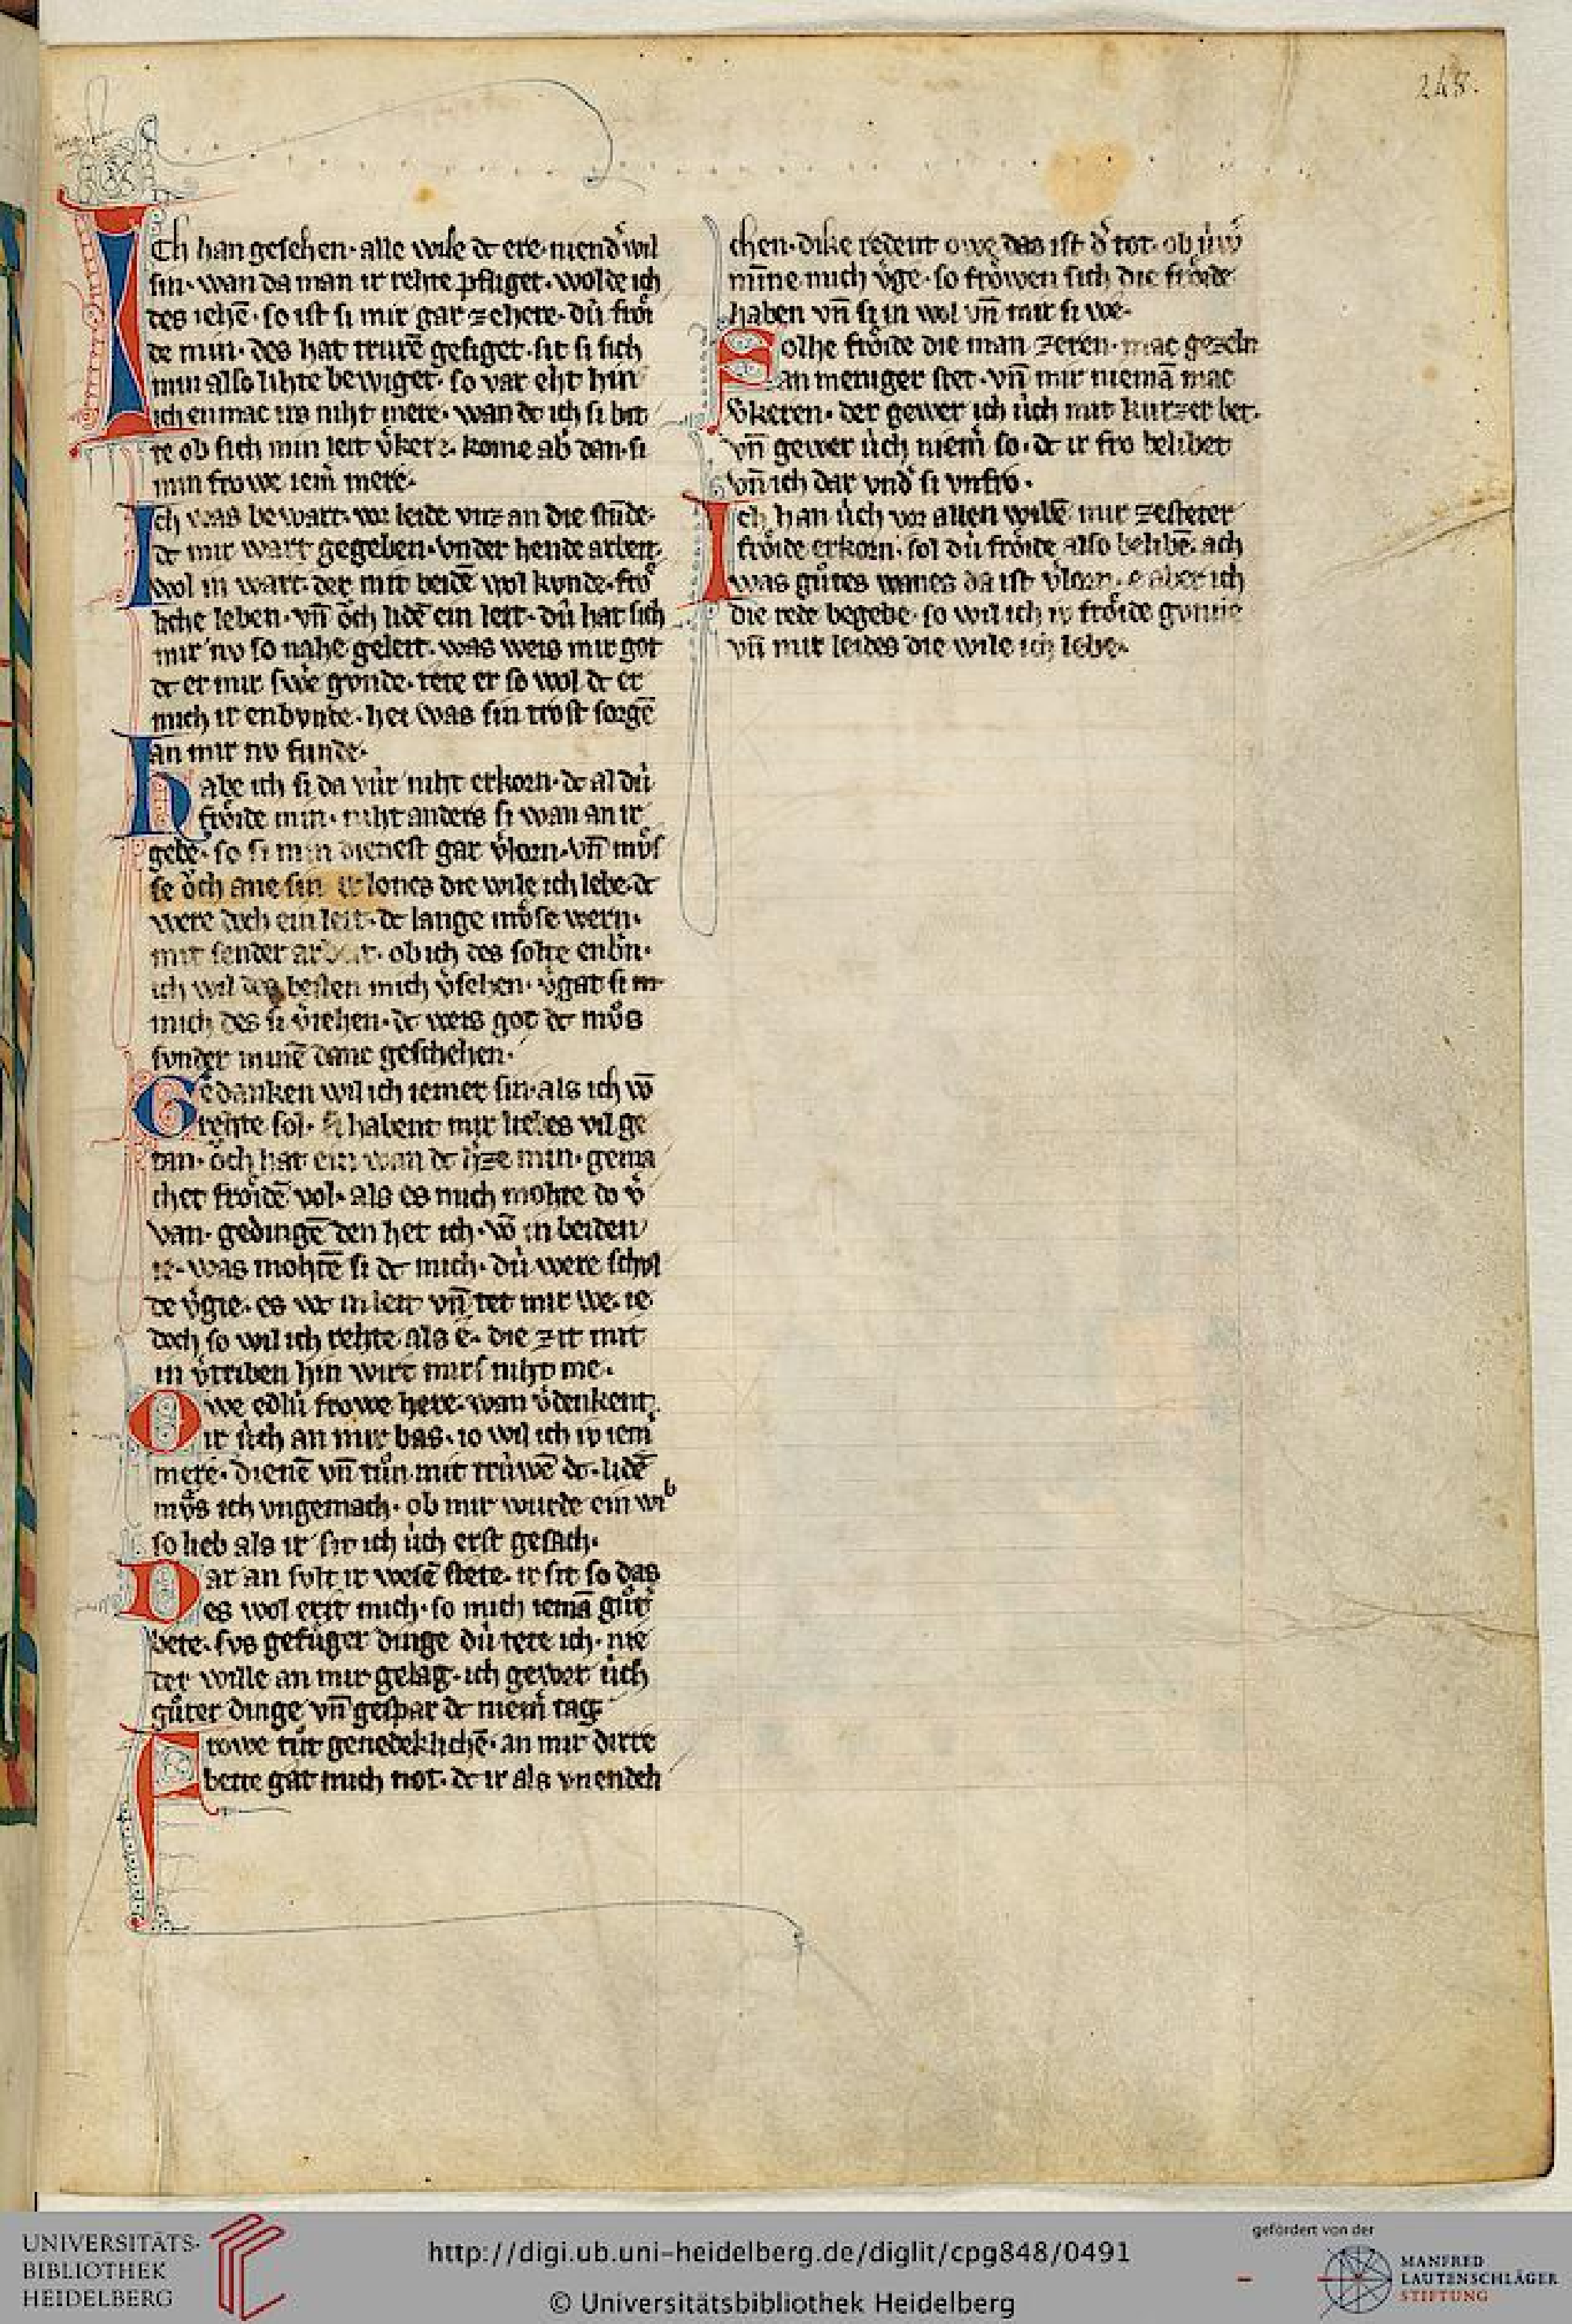 248.
ICh han gesehen· alle wise dc ere· niend͛ wil
sin· wan da man ir rehte pfliget· wolde ich
des iehē· so ist si mir gar zehere· dú froͤi
de min· des hat trurē gesiget· sit si sich
min also lihte bewiget· so var eht hin
ich enmac irs niht mere· wan dc ich si bit
te ob sich min leit v͛kere· kome ab͛ dan· si
min frowe iem͛ mere·
Ich was bewart· vor leide vnz an die stūde·
dc mir wart gegeben· vnder hende arbeit·
wol in wart· der mit beidē wol kvnde· froͤ
liche leben· vn̄ oͮch lidē ein leit· dú hat sich
mir nv so nahe geleit· was weis mir got
dc er mir swe͛ gonde· tete er so wol dc er
mich ir enbvnde· hei was sin trost sorgē
an mir nv funde·
Habe ich si da vúr niht erkorn· dc al dú
froͤide min· niht anders si wan an ir
gebe· so si min dienest gar v͛lorn· vn̄ mvͦs
se oͮch ane sin lones die wile ich lebe· dc
were doch ein leit· dc lange mvͦse wern·
mit sender arbeit· ob ich des solte enb͛n·
ich wil des besten mich v͛sehen· v͛gat si in
mich des si v͛iehen· dc weis got dc mvͦs
svnder minē danc geschehen·
Gedanken wil ich iemer sin· als ich vō
rehte sol· si habent mir liebes vil ge
tan· oͮch hat ein wan dc h͛ze min· gema
chet froͤidē vol· als es mich mohte do v͛
van· gedingē den het ich· vō in beiden
ie· was mohtē si dc mich· dú were schvl
de v͛gie· es wc in leit vn̄ tet mir we· ie
doch so wil ich rehte als e· die zit mit
in v͛triben hin wirt mirs niht me·
Owe edlú frowe here· wan v͛denkent
ir úch an mir bas· io wil ich iv iem͛
mere· dienē vn̄ tuͦn mit trúwē dc· lidē
mvͦs ich vngemach· ob mir wurde ein wib
so lieb als ir sit ich úch erst gesach·
Dar an sult ir wesē stete· ir sit so das
es wol erit mich· so mich iemā guͦt͛
bete· svs gefuͤger dinge dú tete ich· nie
der wille an mir gelag· ich gewer úch
guͦter dinge vn̄ gespar dc niem͛ tag·
Frowe tuͦt genedeklichē· an mir dirre
bette gat mich not· dc ir als vnendeli
chen· dike redent owe das ist d͛ tot· ob úw͛
mīne mich v͛ge· so froͤwen sich die froͤide
haben vn̄ si in wol vn̄ mir si we·
Solhe froͤide die man zeren· mac gezeln
an meniger stet· vn̄ mir niemā mac
v͛keren· der gewer ich úch mit kurzer bet·
vn̄ gewer úch niem͛ so· dc ir fro belibet
vn̄ ich dar vnd͛ si vnfro·
Ich han úch vor allen wibē· mir zesteter
froͤide erkorn· sol dú froͤide also belibē· ach
was guͦtes wanes da ist v͛lorn· e aber ich
die rede begebe· so wil ich iv froͤide gvnnē
vn̄ mir leides die wile ich lebe·
UNIVERSITÄTS-
BIBLIOTHEK
HEIDELBERG
http://digi.ub.uni-heidelberg.de/diglit/cpg848/0491
© Universitätsbibliothek Heidelberg
gefördert von der
MANFRED
LAUTENSCHLÄGER
STIFTUNG